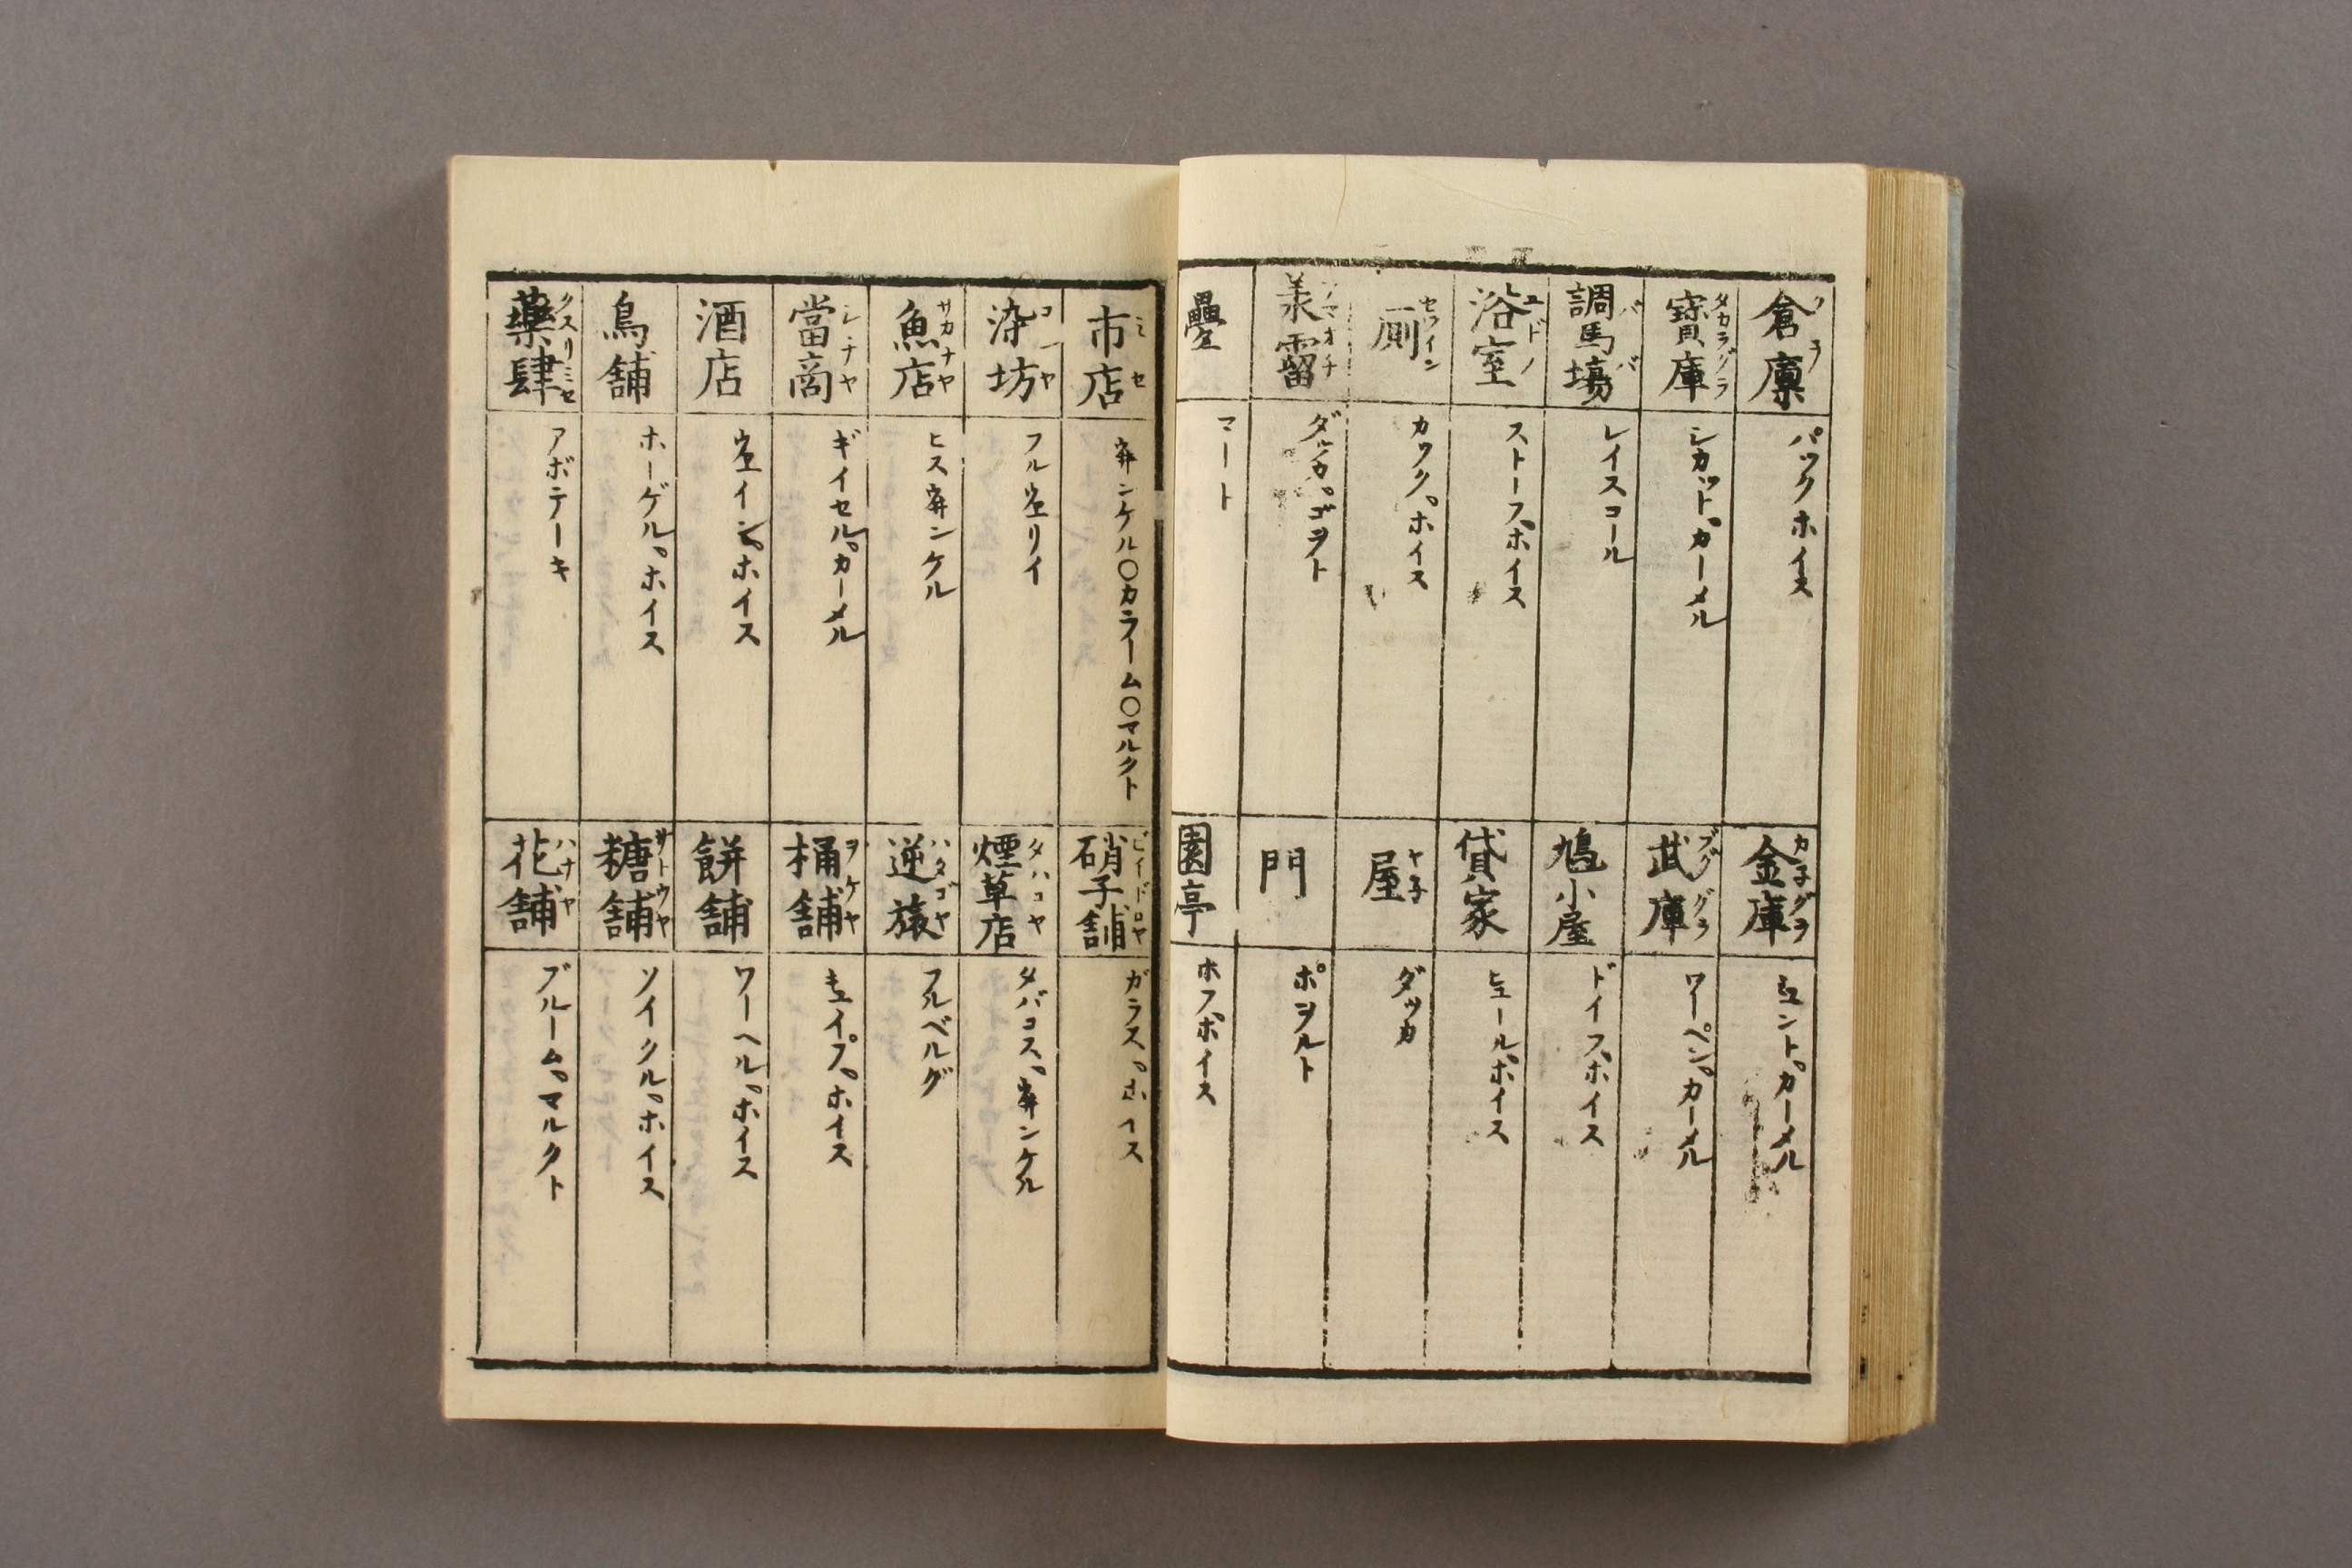 倉廩 ソウ
パックホイス
金庫 カ子グラ
ミュント、カーメル
寶庫 タカラグラ
シカット、カーメル
武庫 ブググラ
ワーペン、カーメル
調馬場 ババ
レイスコール
鳩小屋
ドイフ、ホイス
浴室 ユドノ
ストーフ、ホイス
貸家
ヒュール、ホイス
厠 セツイン
カック、ホイス
屋 ヤ子
ダッカ
霤 アマオチ
ダルカ、ゴヲト
門
ポヲルト
疊
マート
園亭
ホフ、ホイス
市店 ミセ
ウ井ンケル〇カラーム〇マルクト
硝子舗 ビイドロヤ
ガラス、ホイス
染坊 コーヤ
フルウヱリイ
煙草店 タハコヤ
タバコス、ウ井ンケル
魚店 サカナヤ
ヒスウ井ンケル
逆旅 ハタゴヤ
フルベルグ
當商 シチヤ
ギイセル、カーメル
桶舗 ヲケヤ
キュイプ、ホイス
酒店
ウヱイン、ホイス
餅舗
ワーヘル、ホイス
鳥舗
ホーゲル、ホイス
糖舗 サトウヤ
ソイクル、ホイス
藥肆 クスリミセ
アボテーキ
花舗 ハナヤ
ブルーム、マルクト